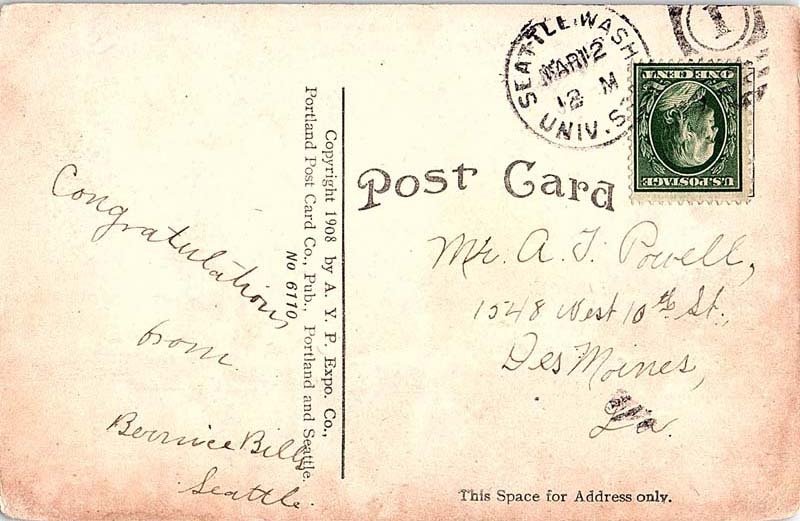 SEATTLE, WASH
MAR 12
12 M
UNIV. S
1
ONE CENT
U.S. POSTAGE
Post Card
Copyright 1908 by A. Y. P. Expo. Co.,
Portland Post Card Co., Pub., Portland and Seattle.
No 6110
Congratulations
from
Bernice Bills
Seattle.
Mr. A. T. Powell,
1548 West 10th St.,
Des Moines,
Ia.
This Space for Address only.